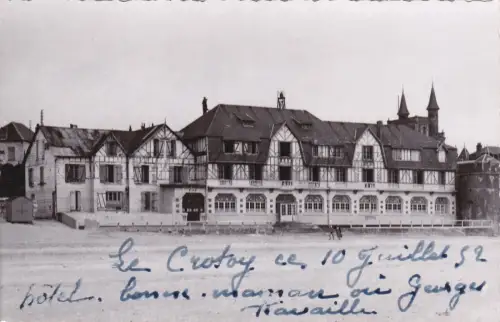 Le Crotoy ce, 10 Juillet 52
hôtel. bonne-maman où Georges
travaille